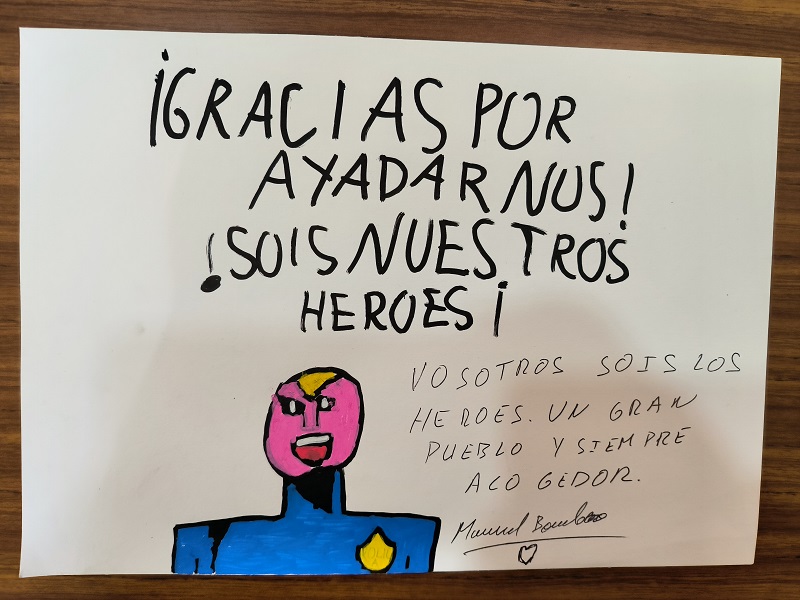 ¡GRACIAS POR
AYADARNUS!
!SOIS NUESTROS
HEROES¡
VOSOTROS SOIS LOS
HEROES. UN GRAN
PUEBLO Y SIEMPRE
ACOGEDOR.
Manuel